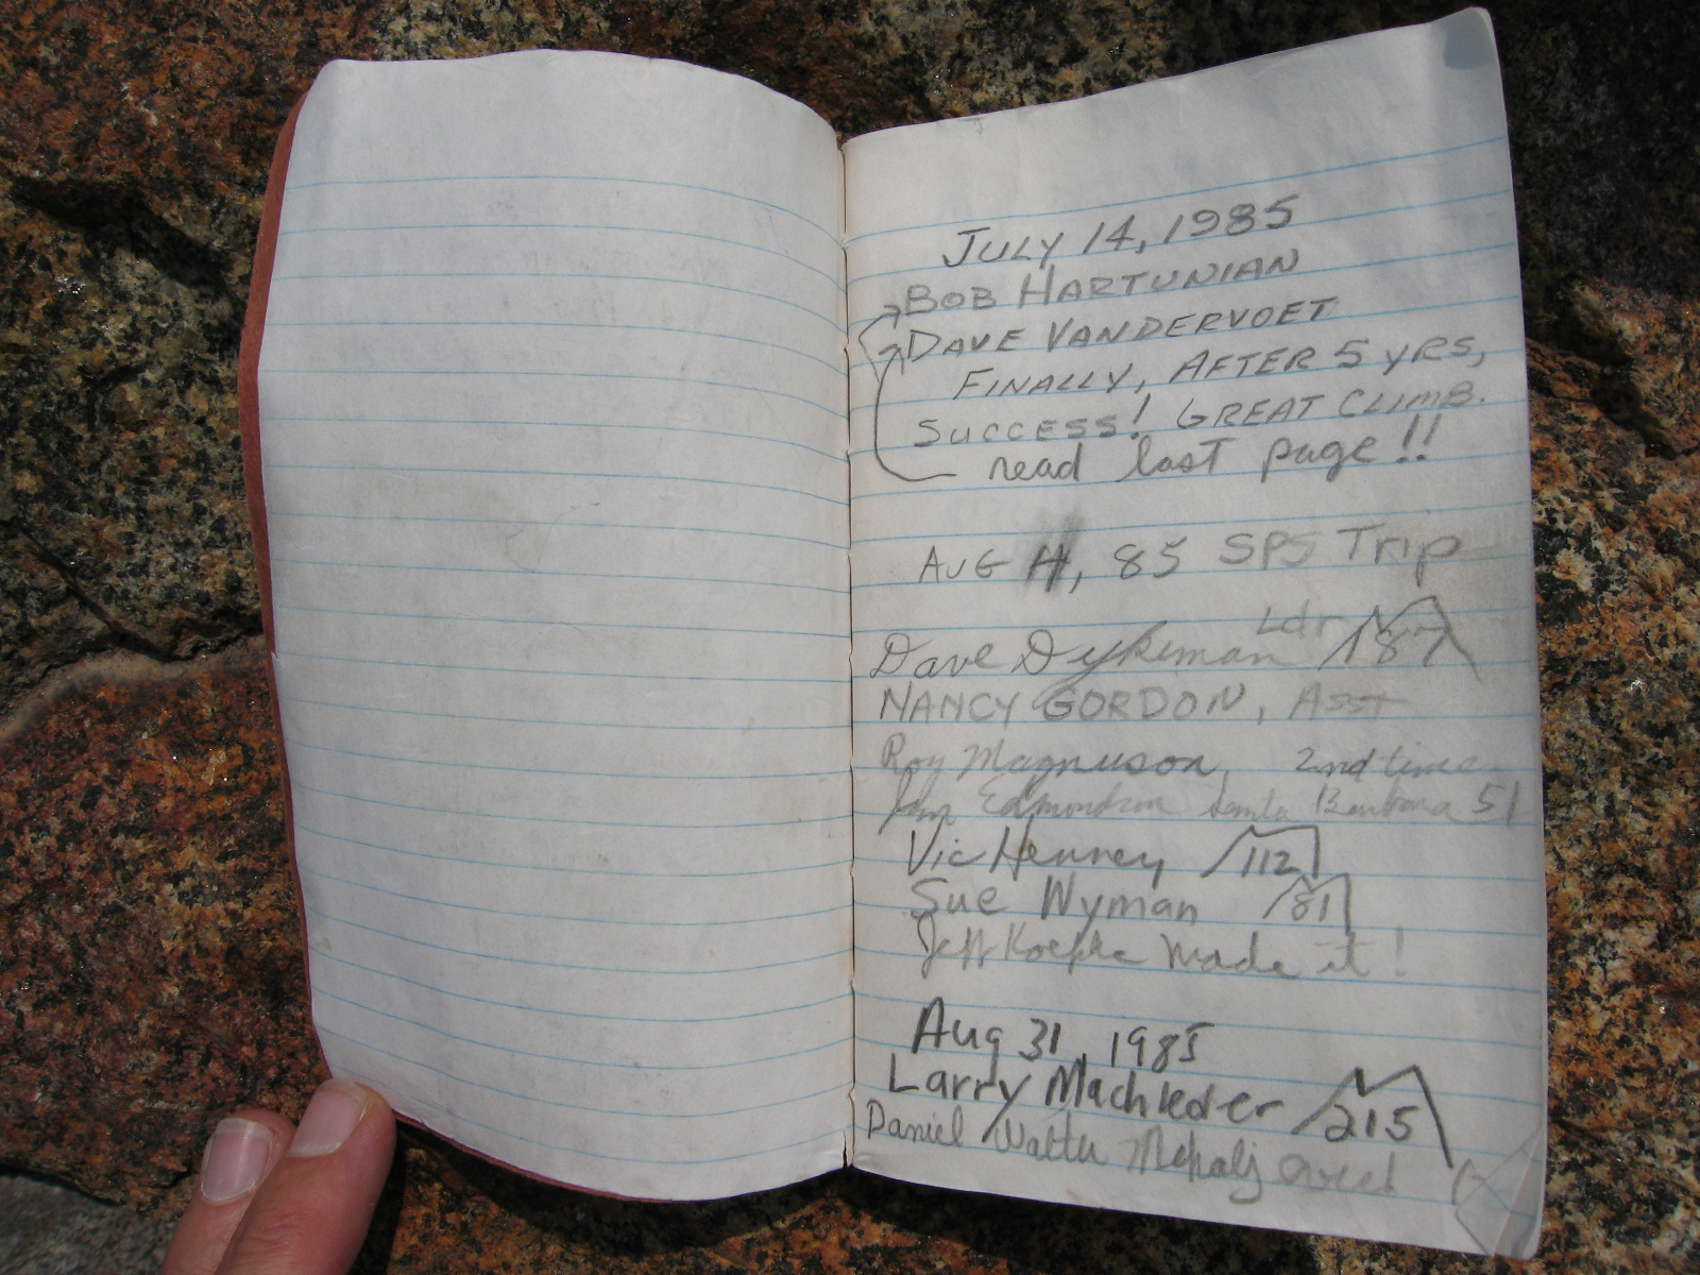 JULY 14, 1985
BOB HARTUNIAN
DAVE VANDERVOET
FINALLY, AFTER 5 YRS,
SUCCESS! GREAT CLIMB.
read last page!!
AUG 11, 85 SPS Trip
Ldr
Dave Dykeman 187
NANCY GORDON, Asst
Roy Magnuson, 2nd time
Edmondson Santa Barbara 51
Vic Henney 112
Sue Wyman 81
Jeff Koepke Made it!
Aug 31, 1985
Larry Machleder 215
Daniel Walter